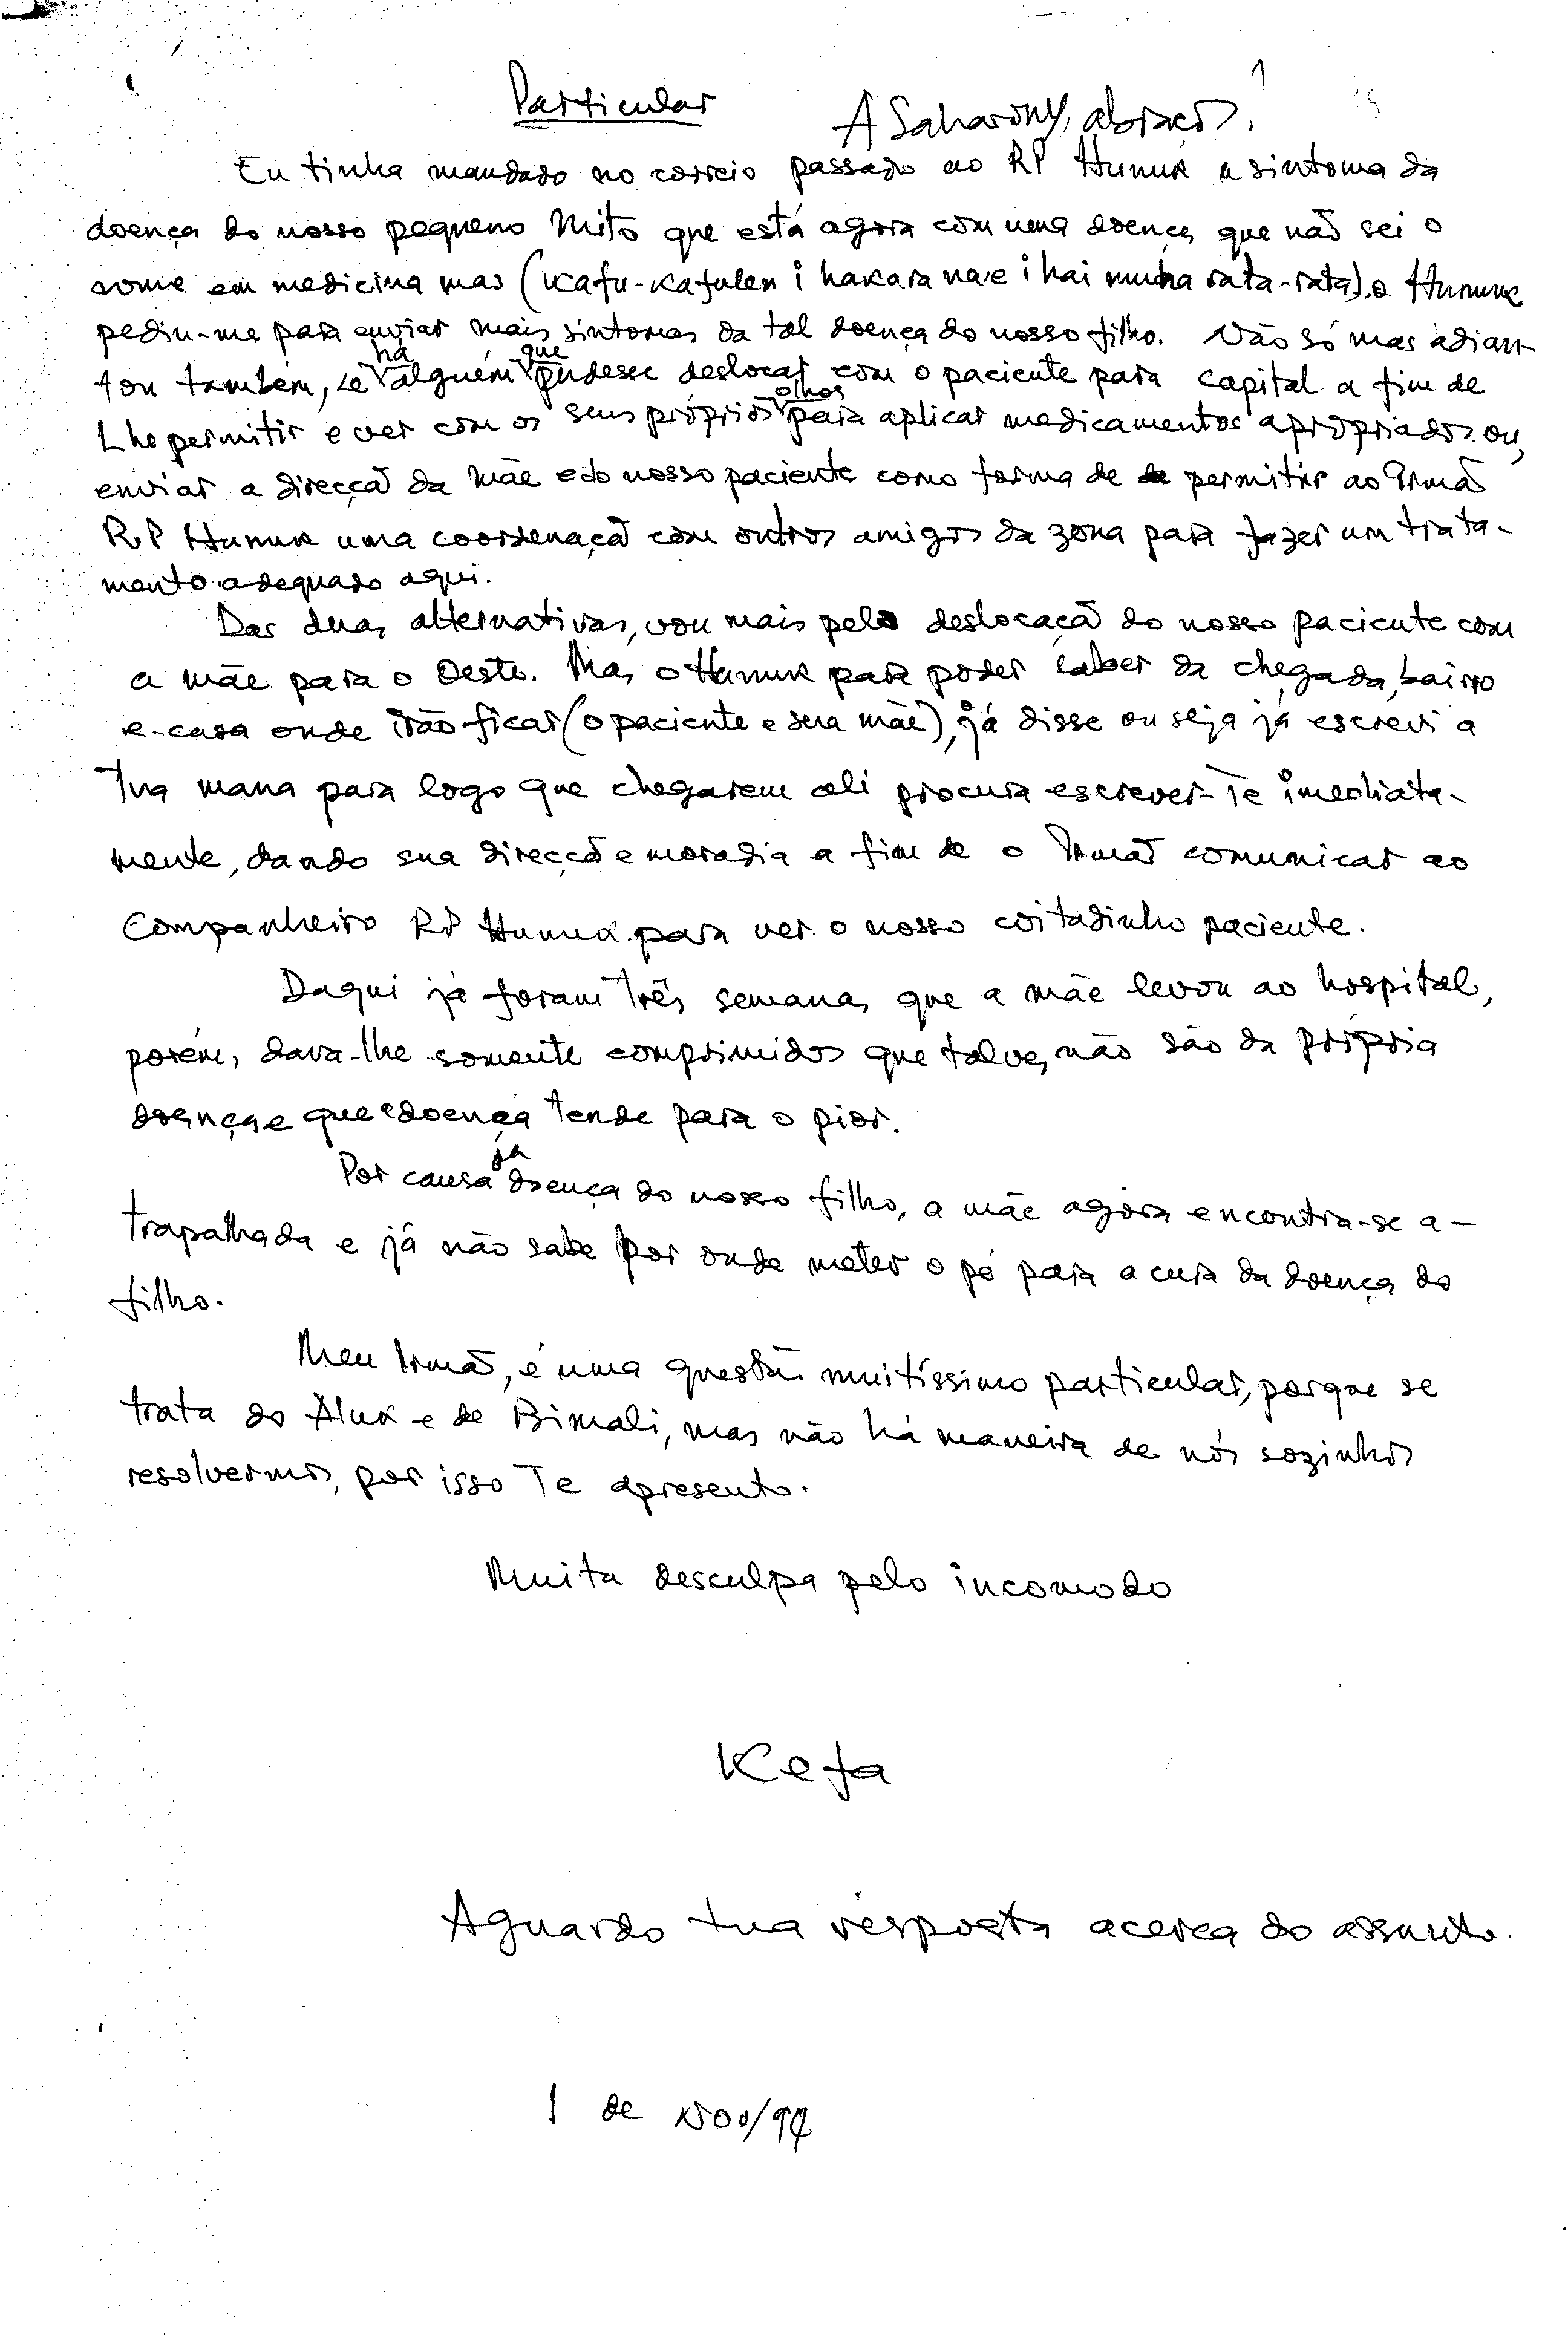 Particular
A Saharony, abraços!
Eu tinha mandado no correio passado ao RP Humuk a sintoma da
doença do nosso pequeno Mito que está agora com uma doença que não sei o
nome em medicina mas (kafu-kafulen i hakara nae i hai muha rata-rata). o Humuk
pediu-me para enviar mais sintomas da tal doença do nosso filho. Não só mas adian-
tou também, se há alguém que pudesse deslocar com o paciente para capital a fim de
Lhe permitir e ver com os seus próprios olhos para aplicar medicamentos apropriados. ou,
enviar a direcção da mãe e do nosso paciente como forma de permitir ao Irmão
RP Humuk uma coordenação com outros amigos da zona para fazer um trata-
mento adequado aqui.
Das duas alternativas, vou mais pelo deslocação do nosso paciente com
a mãe para o Oeste. Mas o Humuk para poder saber da chegada, bairro
e casa onde irão ficar (o paciente e sua mãe), já disse ou seja já escrevi a
Tua mana para logo que chegarem ali procura escrever-Te imediata-
mente, dando sua direcção e moradia a fim de o Irmão comunicar ao
Companheiro RP Humuk para ver o nosso coitadinho paciente.
Daqui já foram Três semanas que a mãe levou ao hospital,
porém, dava-lhe somente comprimidos que talvez não são da própria
doença e que a doença Tende para o pior.
Por causa da doença do nosso filho, a mãe agora encontra-se a-
trapalhada e já não sabe por onde meter o pé para a cura da doença do
filho.
Meu Irmão, é uma questão muitíssimo particular, porque se
trata do Aluk e de Bimali, mas não há maneira de nós sozinhos
resolvermos, por isso Te apresento.
Muita desculpa pelo incomodo
Kefa
Aguardo tua resposta acerca do assunto.
1 de Nov/97